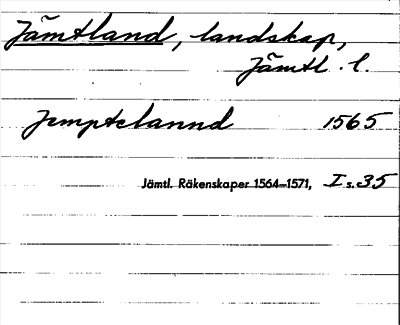 Jämtland, landskap,
Jämtl. l.
Jemptelannd 1565
Jämtl. Räkenskaper 1564—1571, I s. 35